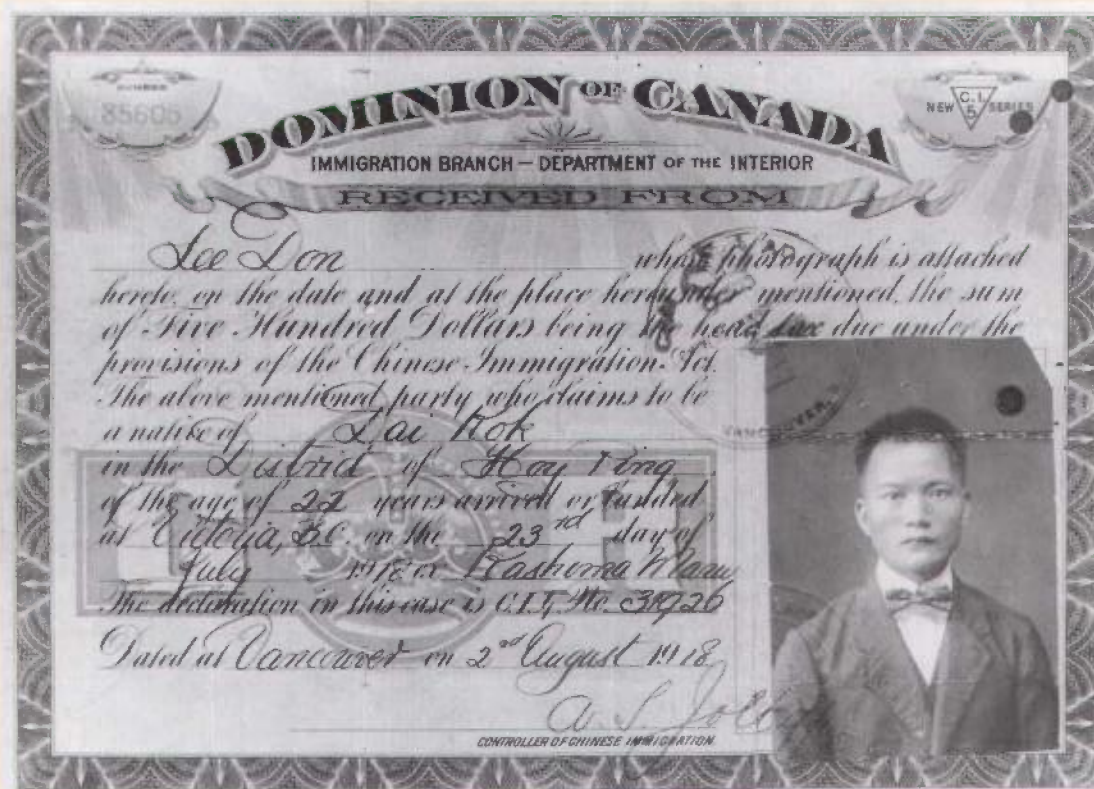 NUMBER
85605
DOMINION OF CANADA
NEW C.I. 5 SERIES
IMMIGRATION BRANCH — DEPARTMENT OF THE INTERIOR
RECEIVED FROM
Lee Don whose photograph is attached
hereto, on the date and at the place hereunder mentioned, the sum
of Five Hundred Dollars being the head tax due under the
provisions of the Chinese Immigration Act.
The above mentioned party who claims to be
a native of Lai Kok
in the District of Hoy Ping
of the age of 22 years arrived or landed
at Victoria, B.C. on the 23rd day of
July 1918 Kashima Maru
The declaration in this case is C.I.5 No.
Dated at Vancouver on 2nd August 1918
A. S.
CONTROLLER OF CHINESE IMMIGRATION.
VANCOUVER